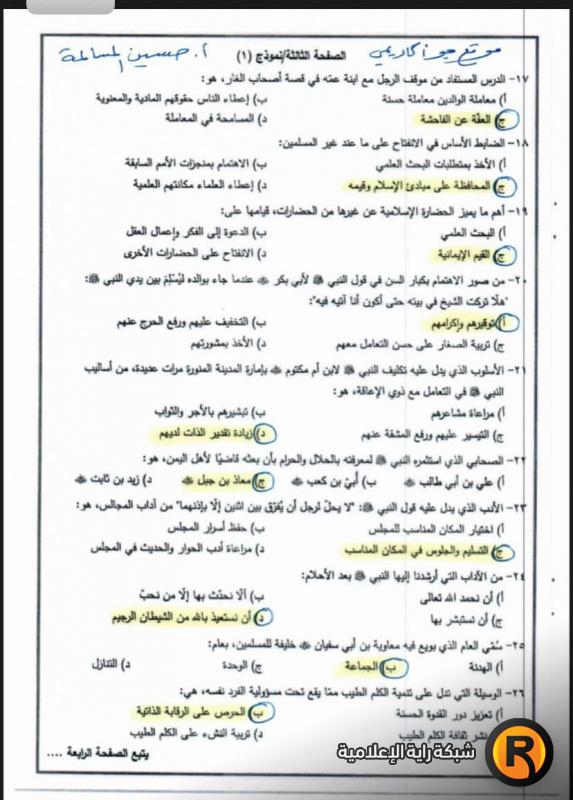 موقع جو أكاديمي
الصفحة الثالثة/نموذج (١)
أ. حسين المسالمة
١٧- الدرس المستفاد من موقف الرجل مع ابنة عمه في قصة أصحاب الغار، هو:
أ) معاملة الوالدين معاملة حسنة ب) إعطاء الناس حقوقهم المادية والمعنوية
ج) العفّة عن الفاحشة د) المسامحة في المعاملة
١٨- الضابط الأساس في الانفتاح على ما عند غير المسلمين:
أ) الأخذ بمتطلبات البحث العلمي ب) الاهتمام بمنجزات الأمم السابقة
ج) المحافظة على مبادئ الإسلام وقيمه د) إعطاء العلماء مكانتهم العلمية
١٩- أهم ما يميز الحضارة الإسلامية عن غيرها من الحضارات، قيامها على:
أ) البحث العلمي ب) الدعوة إلى الفكر وإعمال العقل
ج) القيم الإيمانية د) الانفتاح على الحضارات الأخرى
٢٠- من صور الاهتمام بكبار السن في قول النبي ﷺ لأبي بكر ؓ عندما جاء بوالده ليُسْلِمَ بين يدي النبي ﷺ:
"هلّا تركت الشيخ في بيته حتى أكون أنا آتيه فيه":
أ) توقيرهم وإكرامهم ب) التخفيف عليهم ورفع الحرج عنهم
ج) تربية الصغار على حسن التعامل معهم د) الأخذ بمشورتهم
٢١- الأسلوب الذي يدل عليه تكليف النبي ﷺ لابن أم مكتوم ؓ بإمارة المدينة المنورة مرات عديدة، من أساليب
النبي ﷺ في التعامل مع ذوي الإعاقة، هو:
أ) مراعاة مشاعرهم ب) تبشيرهم بالأجر والثواب
ج) التيسير عليهم ورفع المشقة عنهم د) زيادة تقدير الذات لديهم
٢٢- الصحابي الذي استثمره النبي ﷺ لمعرفته بالحلال والحرام بأن بعثه قاضيًا لأهل اليمن، هو:
أ) علي بن أبي طالب ؓ ب) أُبيّ بن كعب ؓ ج) معاذ بن جبل ؓ د) زيد بن ثابت ؓ
٢٣- الأدب الذي يدل عليه قول النبي ﷺ: "لا يحلّ لرجل أن يُفرّق بين اثنين إلّا بإذنهما" من آداب المجالس، هو:
أ) اختيار المكان المناسب للمجلس ب) حفظ أسرار المجلس
ج) التسليم والجلوس في المكان المناسب د) مراعاة أدب الحوار والحديث في المجلس
٢٤- من الآداب التي أرشدنا إليها النبي ﷺ بعد الأحلام:
أ) أن نحمد الله تعالى ب) ألّا نحدّث بها إلّا من نحبّ
ج) أن نستبشر بها د) أن نستعيذ بالله من الشيطان الرجيم
٢٥- سُمّي العام الذي بويع فيه معاوية بن أبي سفيان ؓ خليفة للمسلمين، بعام:
أ) الهدنة ب) الجماعة ج) الوحدة د) التنازل
٢٦- الوسيلة التي تدل على تنمية الكلم الطيب ممّا يقع تحت مسؤولية الفرد نفسه، هي:
أ) تعزيز دور القدوة الحسنة ب) الحرص على الرقابة الذاتية
نشر ثقافة الكلم الطيب د) تربية النشء على الكلم الطيب
يتبع الصفحة الرابعة ....
شبكة راية الإعلامية
R